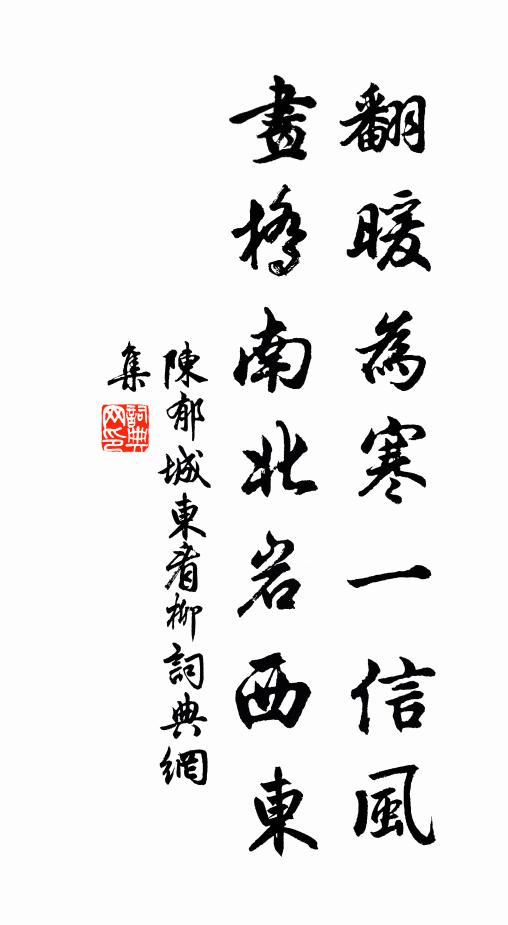 翻暖為寒一信風
畫橋南北岩西東
陳郁城東看柳詞典網
集
詞典網印